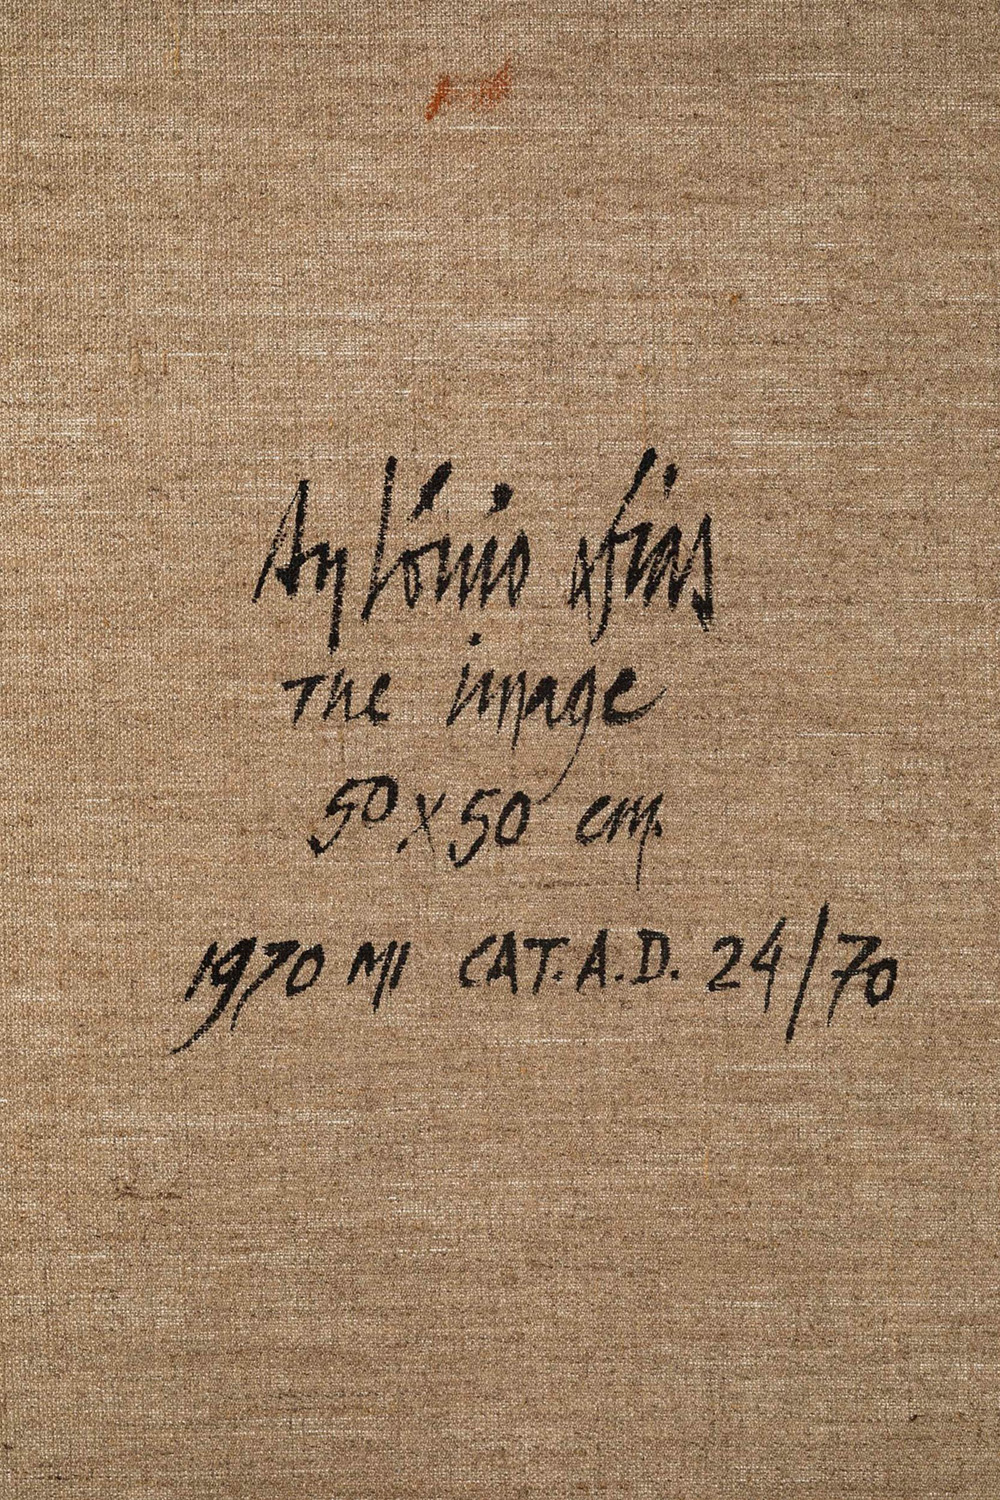 António dias
The image
50x50 cm.
1970 MI CAT.A.D. 24/70